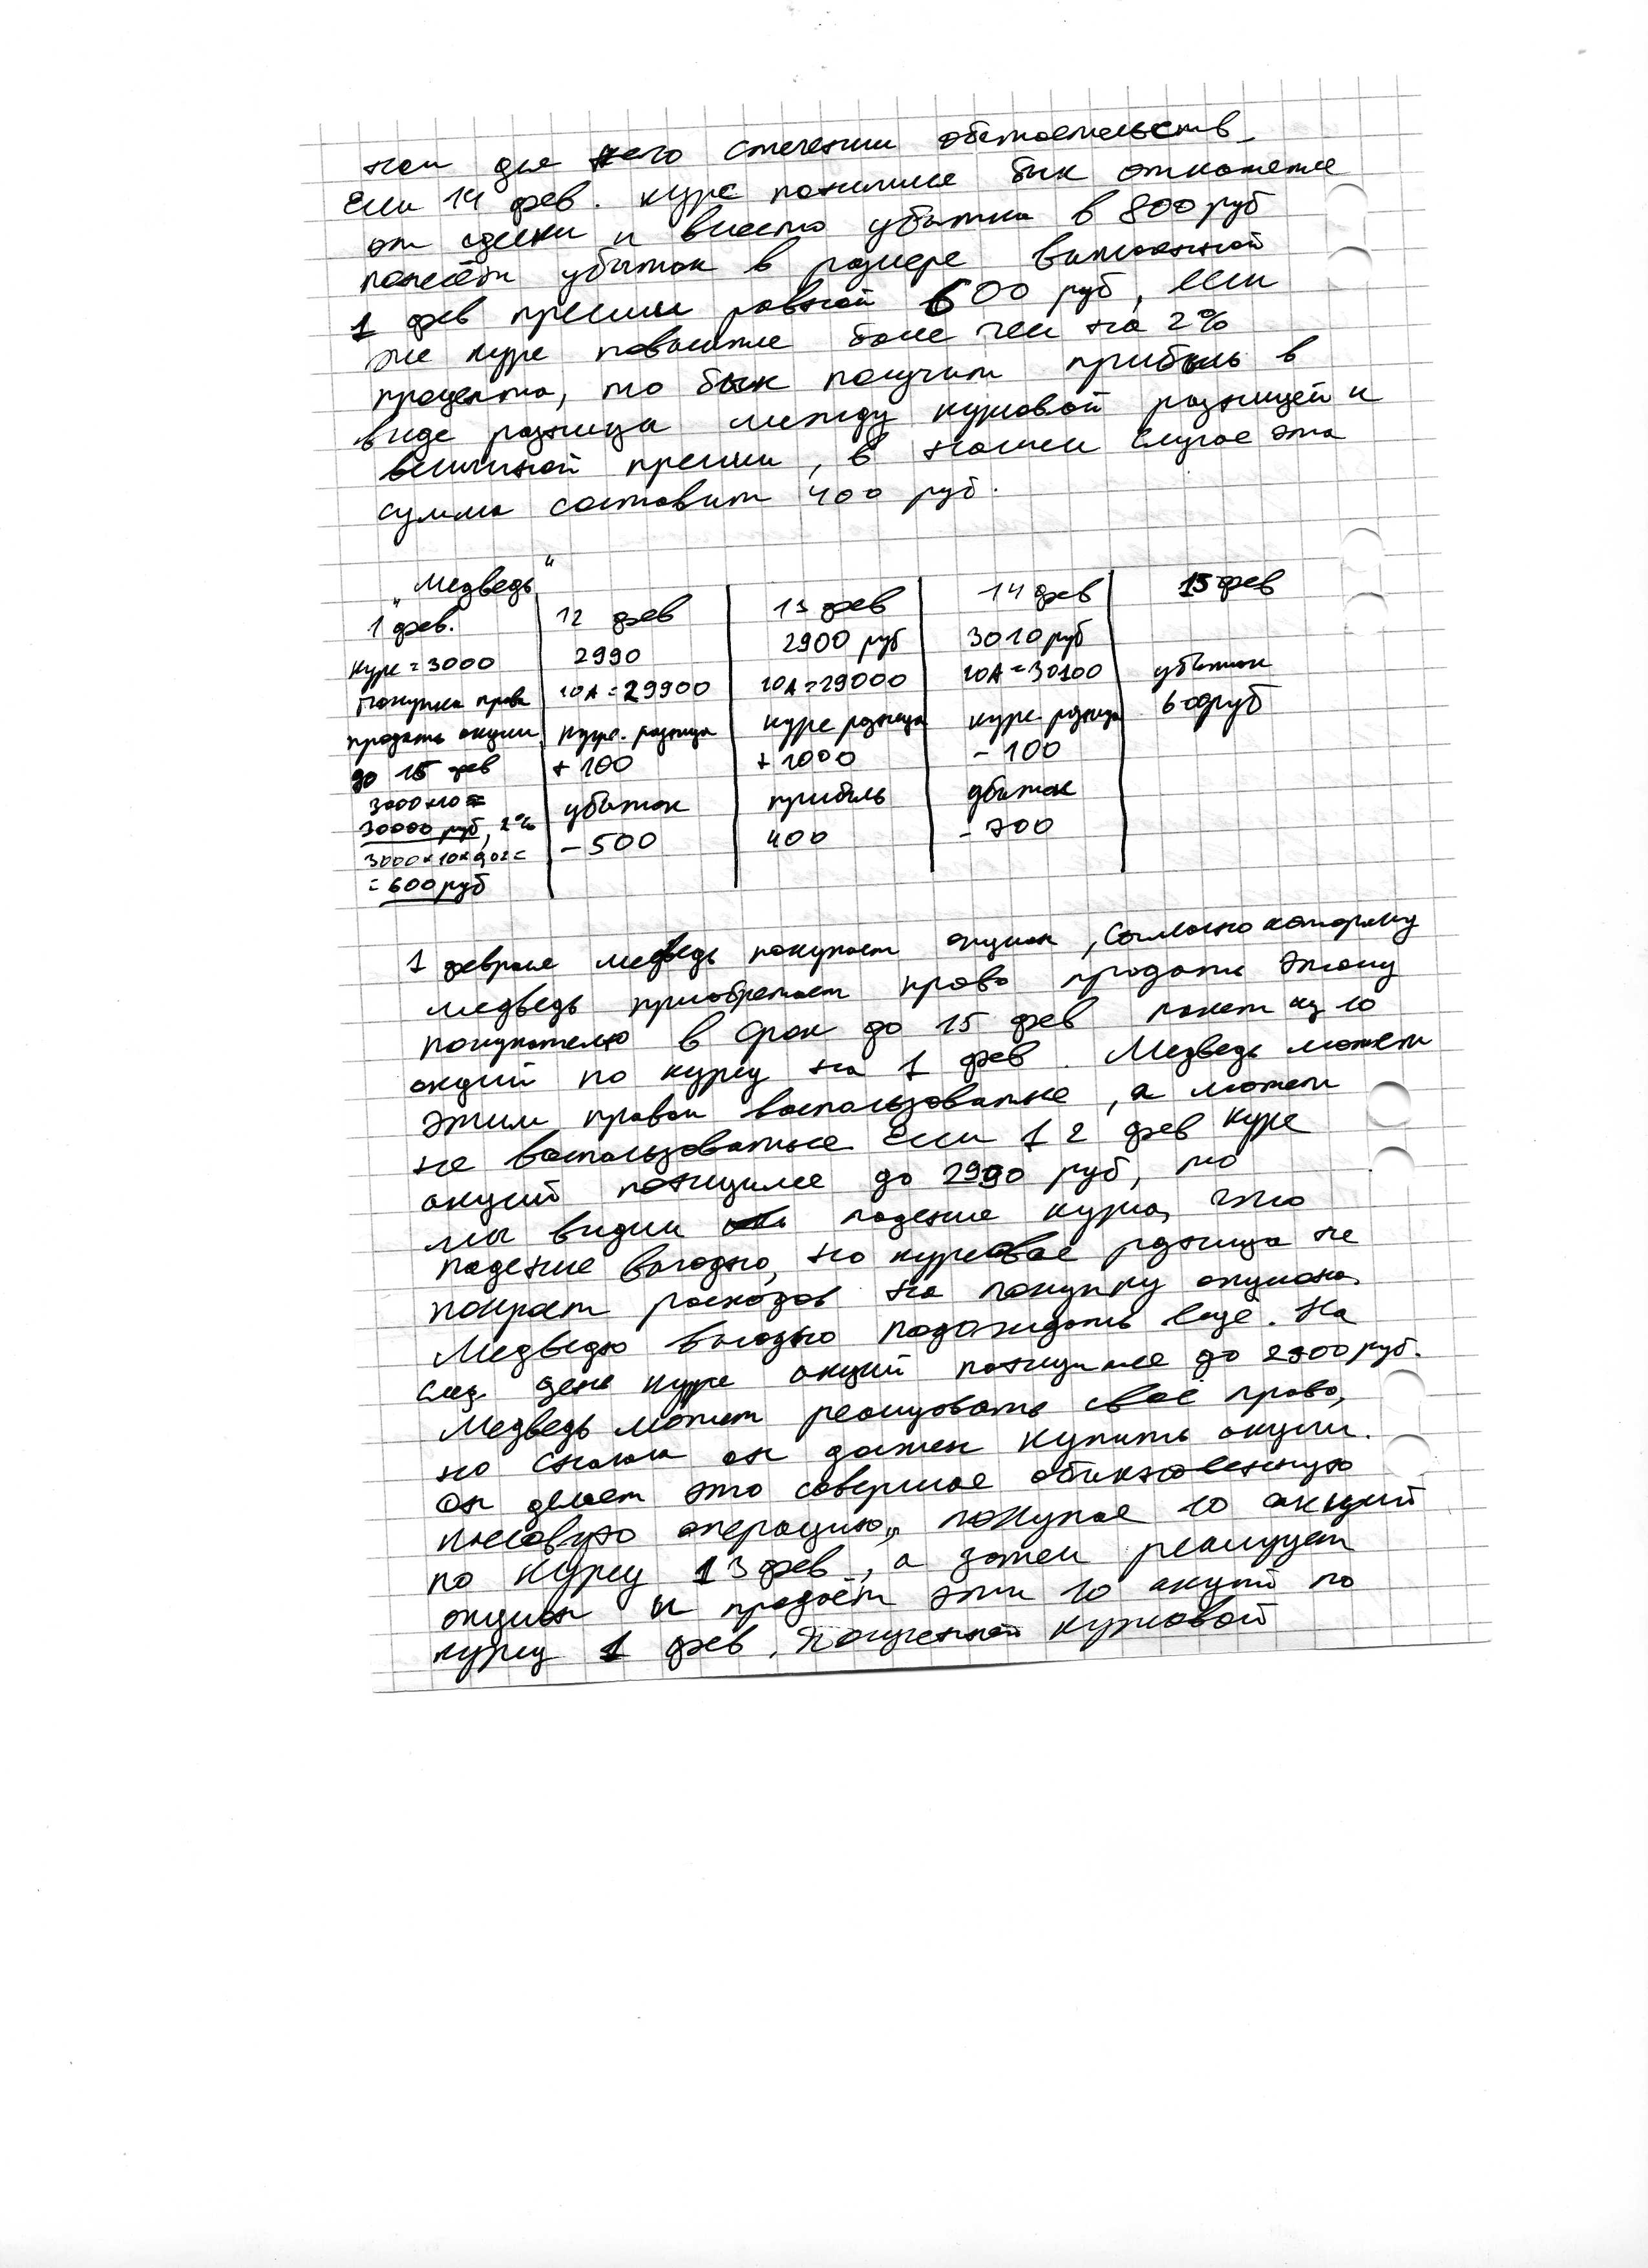 ном для него стечении обстоятельств.
Если 14 фев. курс понизился бык откажется
от сделки и вместо убытка в 800 руб
понесёт убыток в размере выплаченной
1 фев премии равной 600 руб, если
же курс повысится более чем на 2%
процента, то бык получит прибыль в
виде разница между курсовой разницей и
величиной премии, в нашем случае эта
сумма составит 400 руб.
"Медведь"
1 фев. 12 фев 13 фев 14 фев 15 фев
курс = 3000 2990 2900 руб 3010 руб
Покупка права 10А = 29900 10А = 29000 10А = 30100 убыток
продать акции курс. разница курс разница курс. разница 600руб
до 15 фев + 100 + 1000 - 100
3000×10= убыток прибыль убыток
30000 руб, 2% - 500 400 - 700
3000×10×0,02=
= 600 руб
1 февраля медведь покупает опцион, согласно которому
медведь приобретает право продать этому
покупателю в срок до 15 фев пакет из 10
акций по курсу на 1 фев. Медведь может
этим правом воспользоваться, а может
не воспользоваться. Если 12 фев курс
акций понизился до 2990 руб, то
мы видим падение курса, это
падение выгодно, но курсовая разница не
покроет расходов на покупку опциона.
Медведю выгодно подождать еще. На
след день курс акций понизился до 2900 руб.
Медведь может реализовать своё право,
но сначала он должен купить акции.
Он делает это совершая обыкновенную
кассовую операцию, покупая 10 акций
по курсу 13 фев, а затем реализует
опцион и продаёт эти 10 акций по
курсу 1 фев. Полученной курсовой